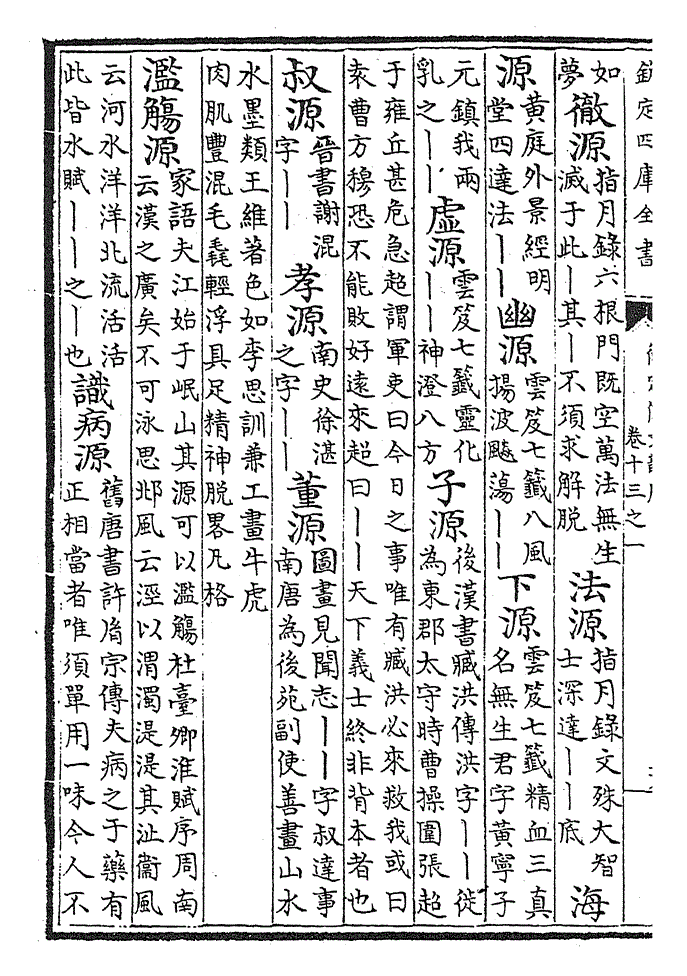 欽定四庫全書
卷十三之一
如夢徹源指月錄六根門既空萬法無生滅于此丨其丨不須求解脱法源指月錄文殊大智士深達丨丨底海
源黄庭外景經明堂四達法丨丨幽源雲笈七籤八風揚波飈蕩丨丨下源雲笈七籤精血三真名無生君字黄寧子
元鎮我兩乳之丨丨虚源雲笈七籤靈化丨丨神澄八方子源後漢書臧洪傳洪字丨丨徙為東郡太守時曹操圍張超
于雍丘甚危急超謂軍吏曰今日之事唯有臧洪必來救我或曰袁曹方穆恐不能敗好逺來超曰丨丨天下義士終非背本者也
叔源晉書謝混字丨丨孝源南史徐湛之字丨丨董源圖畫見聞志丨丨字叔達事南唐為後苑副使善畫山水
水墨類王維著色如李思訓兼工畫牛虎肉肌豐混毛毳輕浮具足精神脱畧凡格
濫觴源家語夫江始于岷山其源可以濫觴杜臺卿淮賦序周南云漢之廣矣不可泳思邶風云涇以渭濁湜湜其沚衞風
云河水洋洋北流活活此皆水賦丨丨之丨也識病源舊唐書許𦙍宗傳夫病之于藥有正相當者唯須單用一味今人不